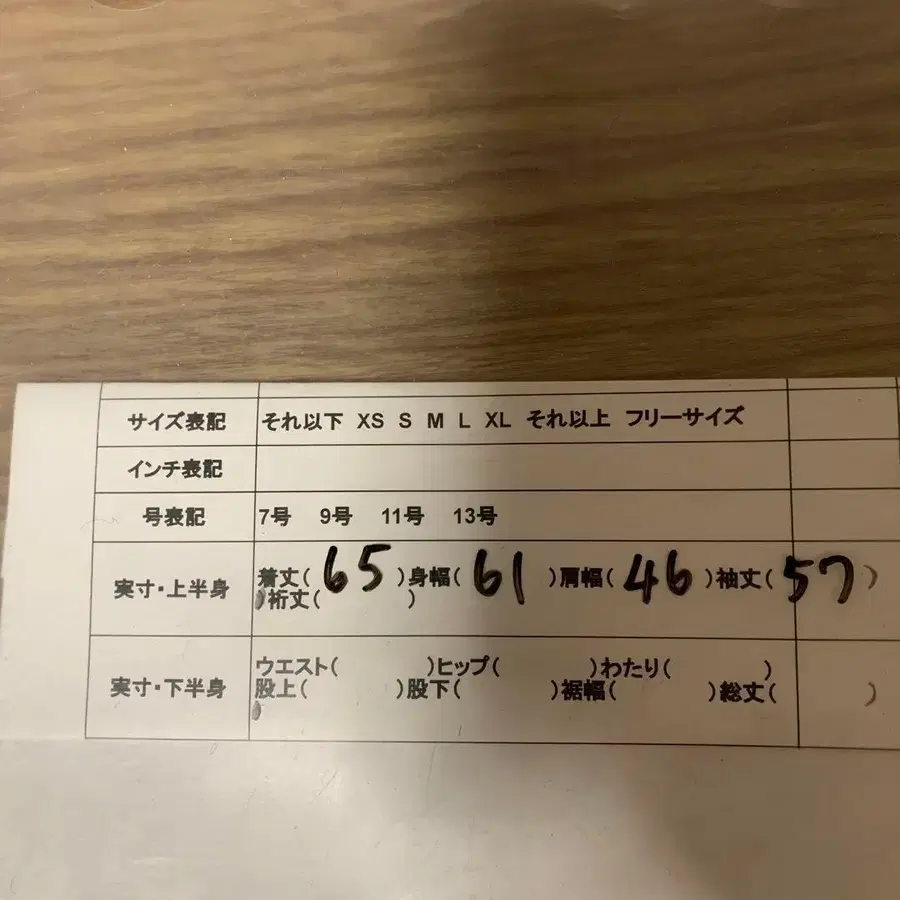 サイズ表記 それ以下 XS S M L XL それ以上 フリーサイズ
インチ表記
号表記 7号 9号 11号 13号
実寸・上半身 着丈( 65 )身幅( 61 )肩幅( 46 )袖丈( 57 )
)裄丈( )
実寸・下半身 ウエスト( )ヒップ( )わたり( )
股上( )股下( )裾幅( )総丈( )